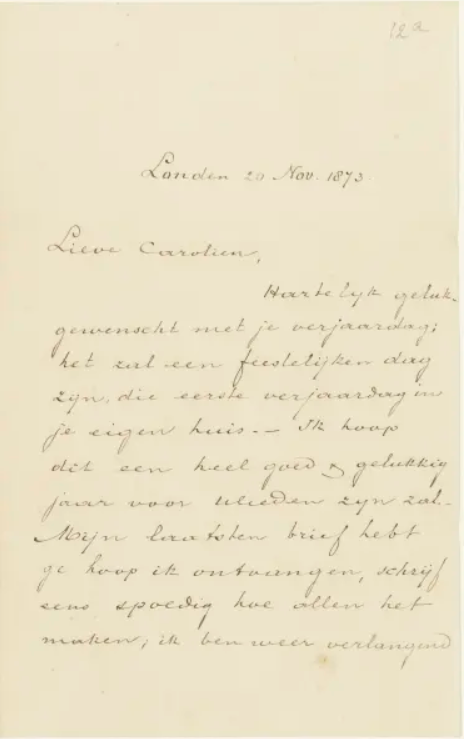 12a
Londen 20 Nov. 1873.
Lieve Carolien,
Hartelijk geluk-
gewenscht met je verjaardag;
het zal een feestelijken dag
zijn, die eerste verjaardag in
je eigen huis. – Ik hoop
dit een heel goed & gelukkig
jaar voor ulieden zijn zal.
Mijn laatsten brief hebt
ge hoop ik ontvangen, schrijf
eens spoedig hoe allen het
maken; ik ben weer verlangend